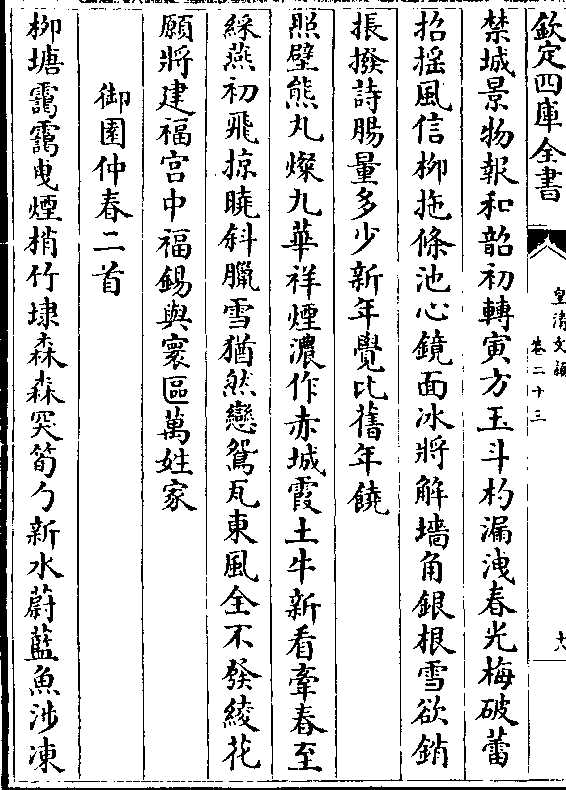 欽定四庫全書
皇清文穎
卷二十三
禁城景物報和韶初轉寅方玉斗杓漏洩春光梅破蕾
招搖風信柳拖條池心鏡面冰將解墻角銀根雪欲銷
掁撥詩腸量多少新年覺比舊年饒
照壁熊丸燦九華祥煙濃作赤城霞土牛新看牽春至
綵燕初飛掠曉斜臘雪猶然戀鴛瓦東風全不發綾花
願將建福宮中福錫與寰區萬姓家
御園仲春二首
柳塘靄靄曳煙梢竹埭森森突筍勺新水蔚藍魚涉凍